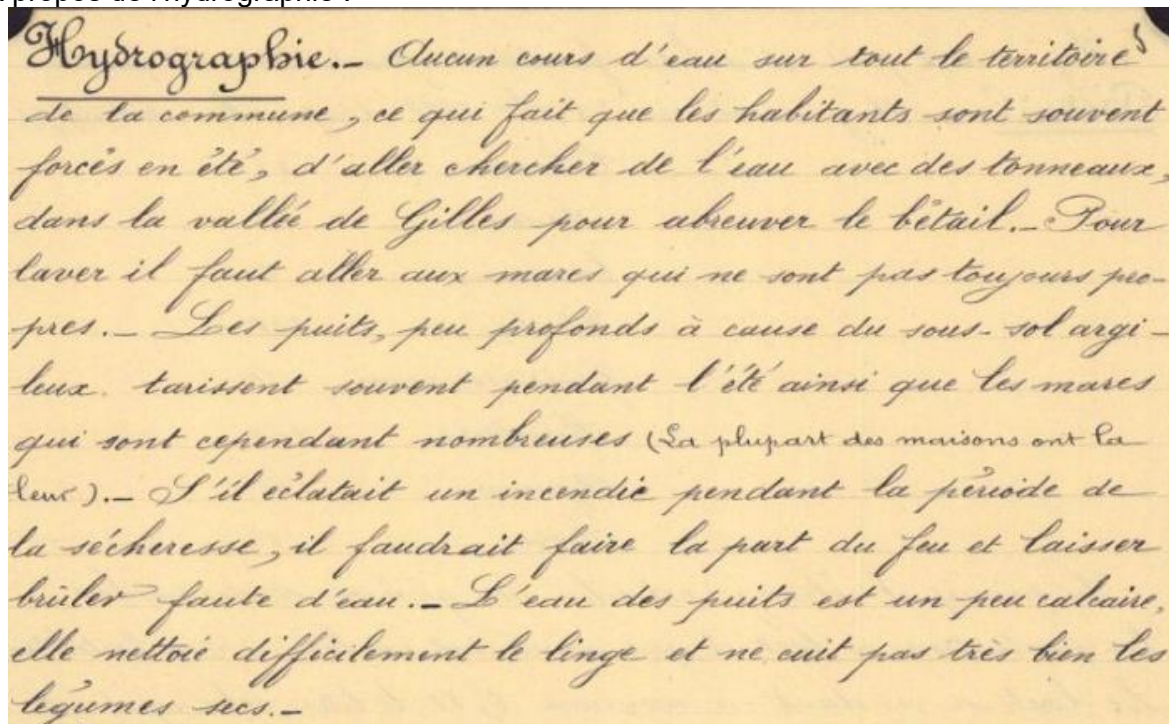 propos de l'hydrographie :
Hydrographie._ Aucun cours d'eau sur tout le territoire 5
de la commune, ce qui fait que les habitants sont souvent
forcés en été, d'aller chercher de l'eau avec des tonneaux,
dans la vallée de Gilles pour abreuver le bétail._ Pour
laver il faut aller aux mares qui ne sont pas toujours pro-
pres._ Les puits, peu profonds à cause du sous-sol argi-
leux. tarissent souvent pendant l'été ainsi que les mares
qui sont cependant nombreuses (La plupart des maisons ont la
leur)._ S'il éclatait un incendie pendant la période de
la sécheresse, il faudrait faire la part du feu et laisser
brûler faute d'eau._ L'eau des puits est un peu calcaire,
elle nettoie difficilement le linge et ne cuit pas très bien les
légumes secs._